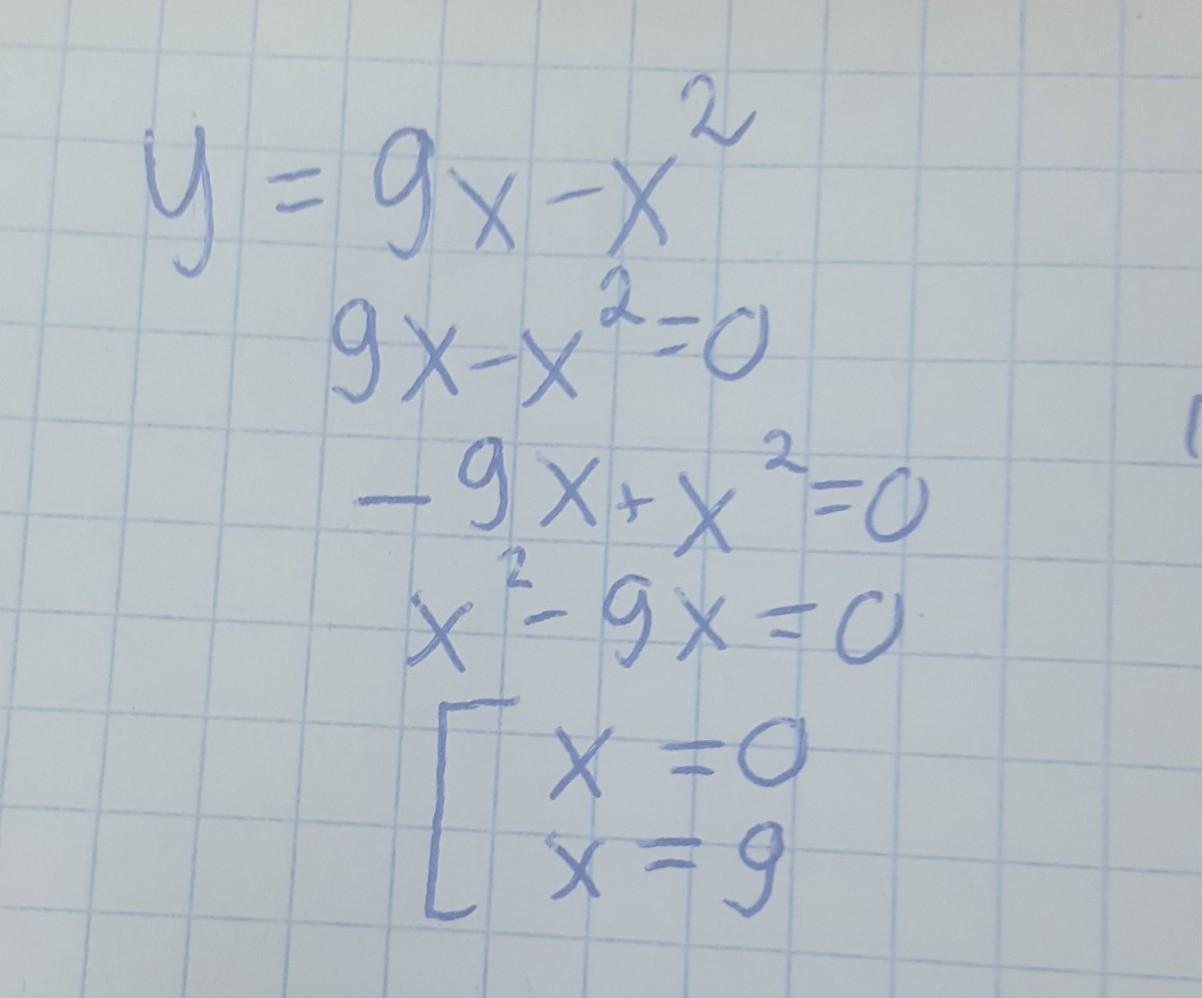 y = 9x - x²
9x - x² = 0
- 9x + x² = 0
x² - 9x = 0
[ x = 0
x = 9